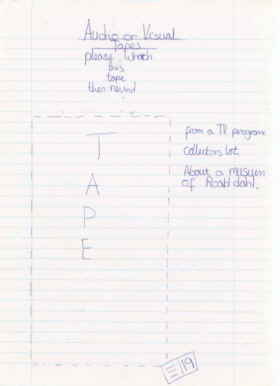 Audio or Visual
Tapes
please watch
this
tape
then rewind
T
A
P
E
from a TV program
collectors lot.
About a museum
of Roald dahl.
19